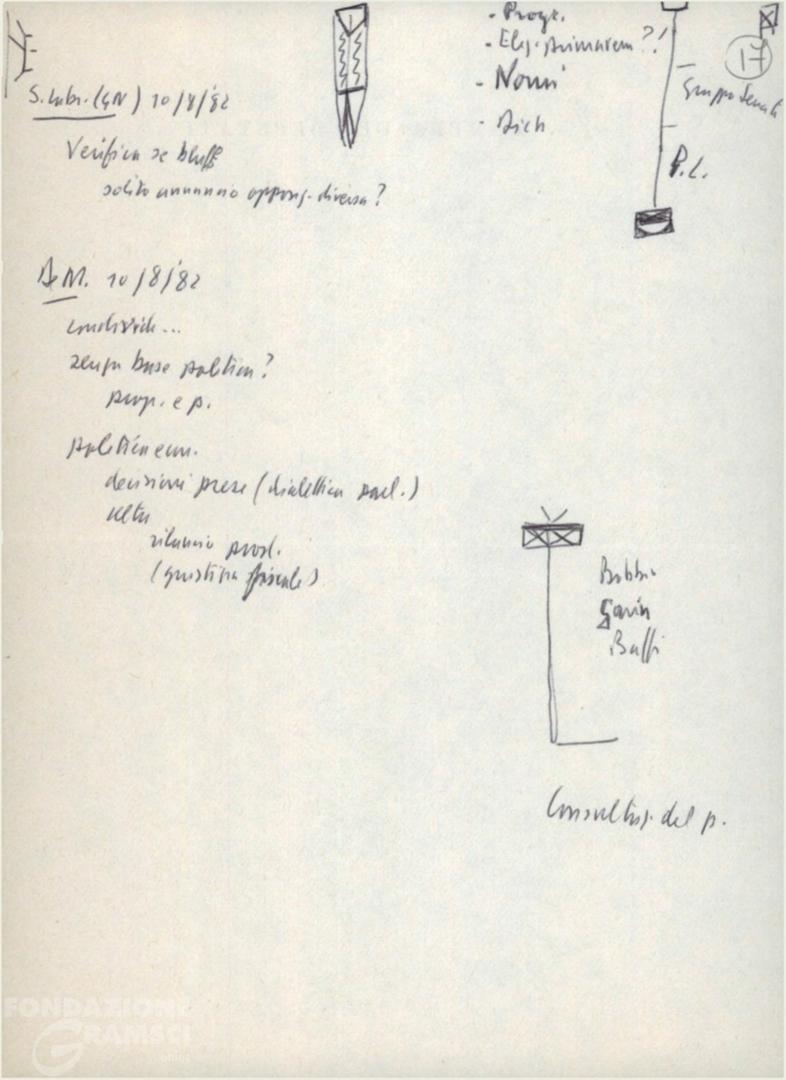 17
- Progr.
- Eleg. primarem ?!
- Nomi
- Dich
Gruppo Senati
P.L.
S. Labr. (GN) 10/8/'82
Verifica se bluff
solito annuncio opposiz. diversa?
A.M. 10/8/'82
condivide...
senza base politica?
prop. e p.
politica econ.
decisioni prese (dialettica parl.)
rilancio prod.
(giustizia fiscale)
Bobbio
Baffi
Consultaz. del p.
FONDAZIONE
GRAMSCI